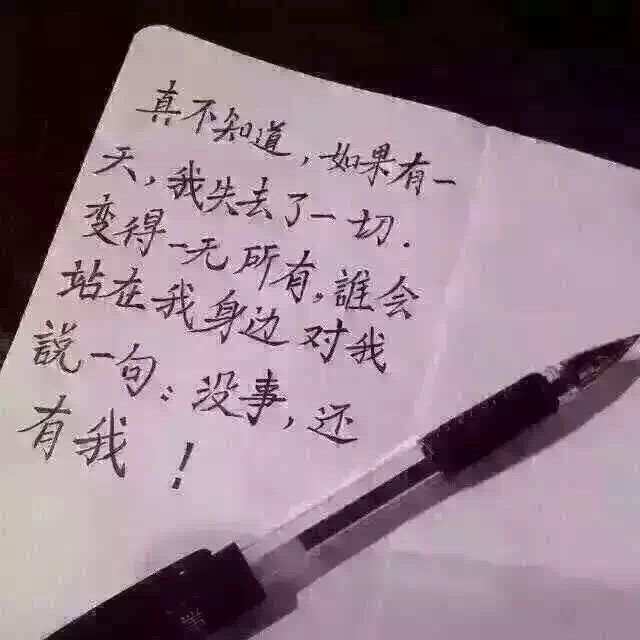 真不知道，如果有一
天，我失去了一切．
变得一无所有，誰会
站在我身边对我
說一句：没事，还
有我！